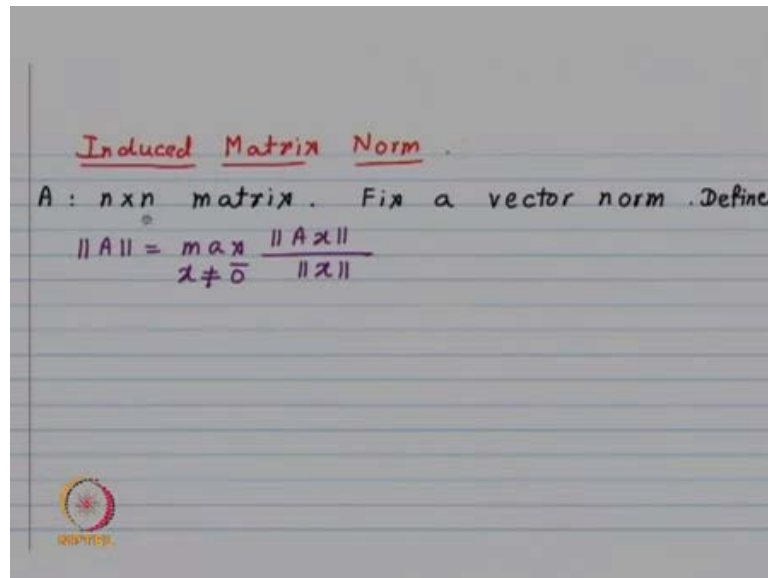 Induced Matrix Norm.
A : n x n matrix. Fix a vector norm. Define
|| A || = max x ≠ 0̄ || A x || / || x ||
NPTEL